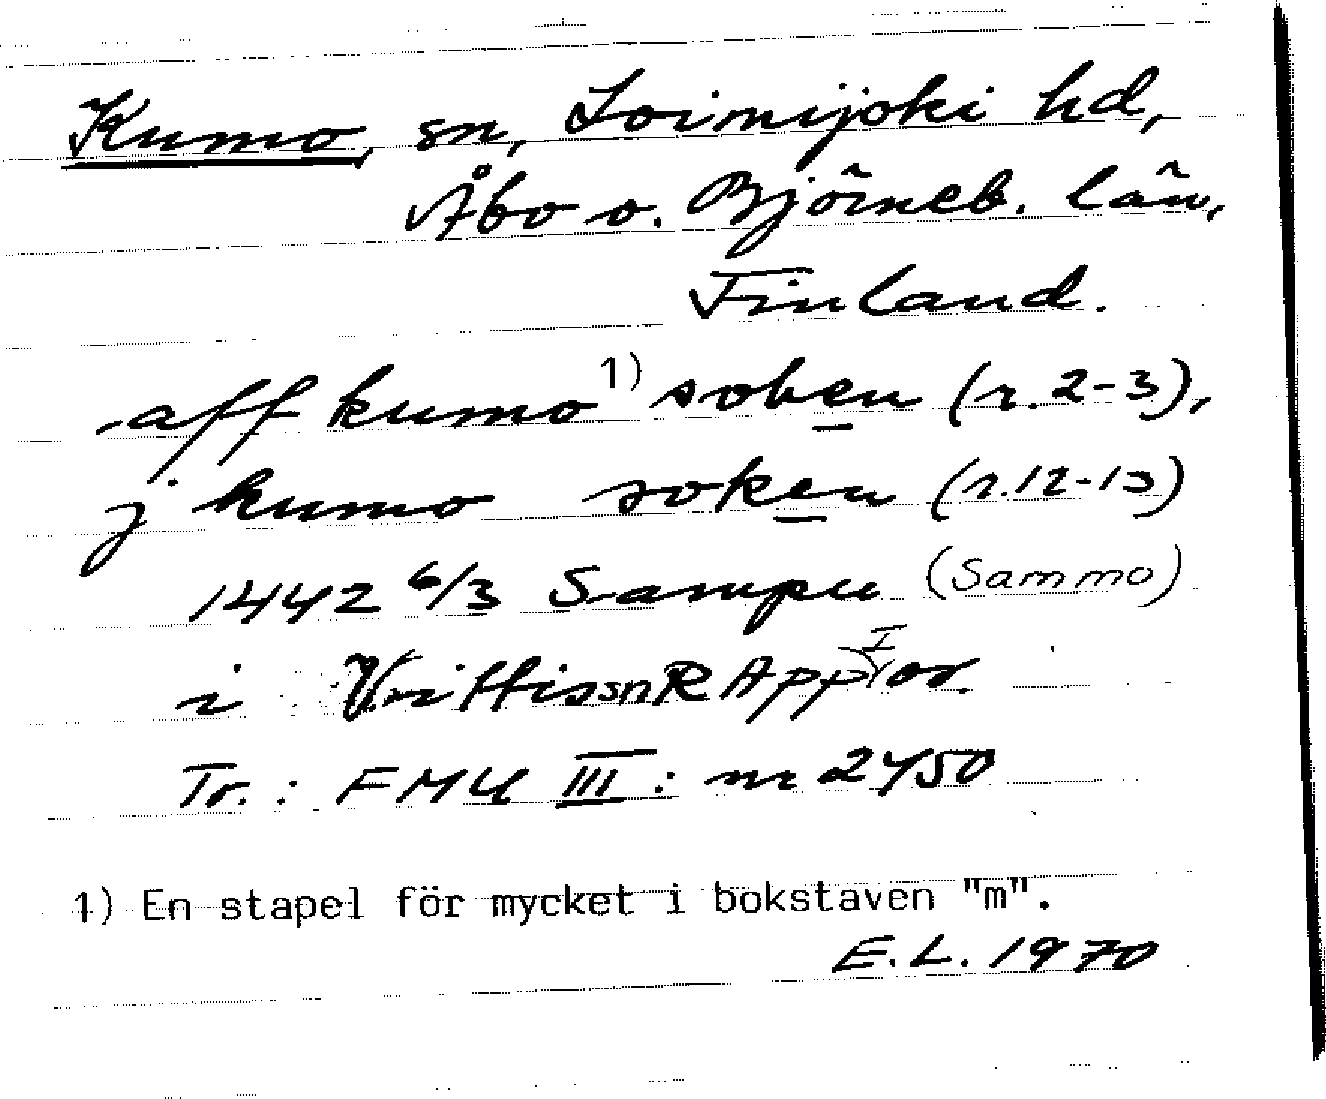 Kumo, sn, Loimijoki hd,
Åbo o. Björneb. län,
Finland.
aff kumo 1) soken (r. 2-3),
j kumo soken (r. 12-13)
1442 6/3 Sampu (Sammo)
i Vrittissn RApp I or.
Tr.: FMU III: nr 2450
1) En stapel för mycket i bokstaven "m".
E.L. 1970